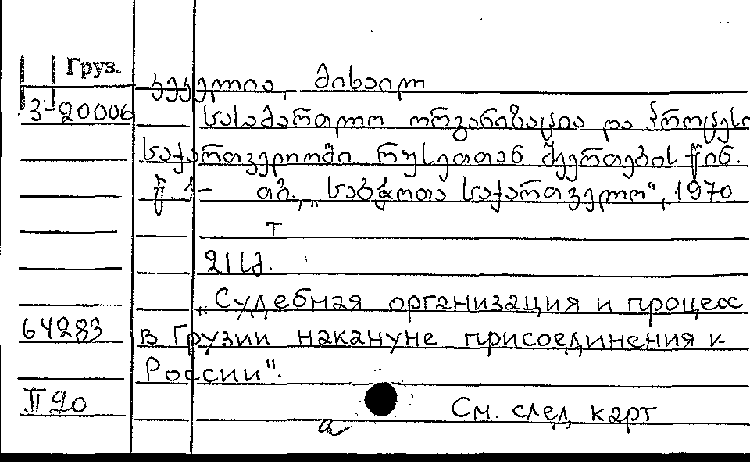 Груз.
კეკელია, მიხაილ
3-20006
სასამართლო ორგანიზაცია და პროცესი
საქართველოში რუსეთთან შეერთების წინ.
თბ., „საბჭოთა საქართველო“, 1970
т
211გ.
„Судебная организация и процесс
64283
в Грузии накануне присоединения к
России".
II 20
См. след карт
а